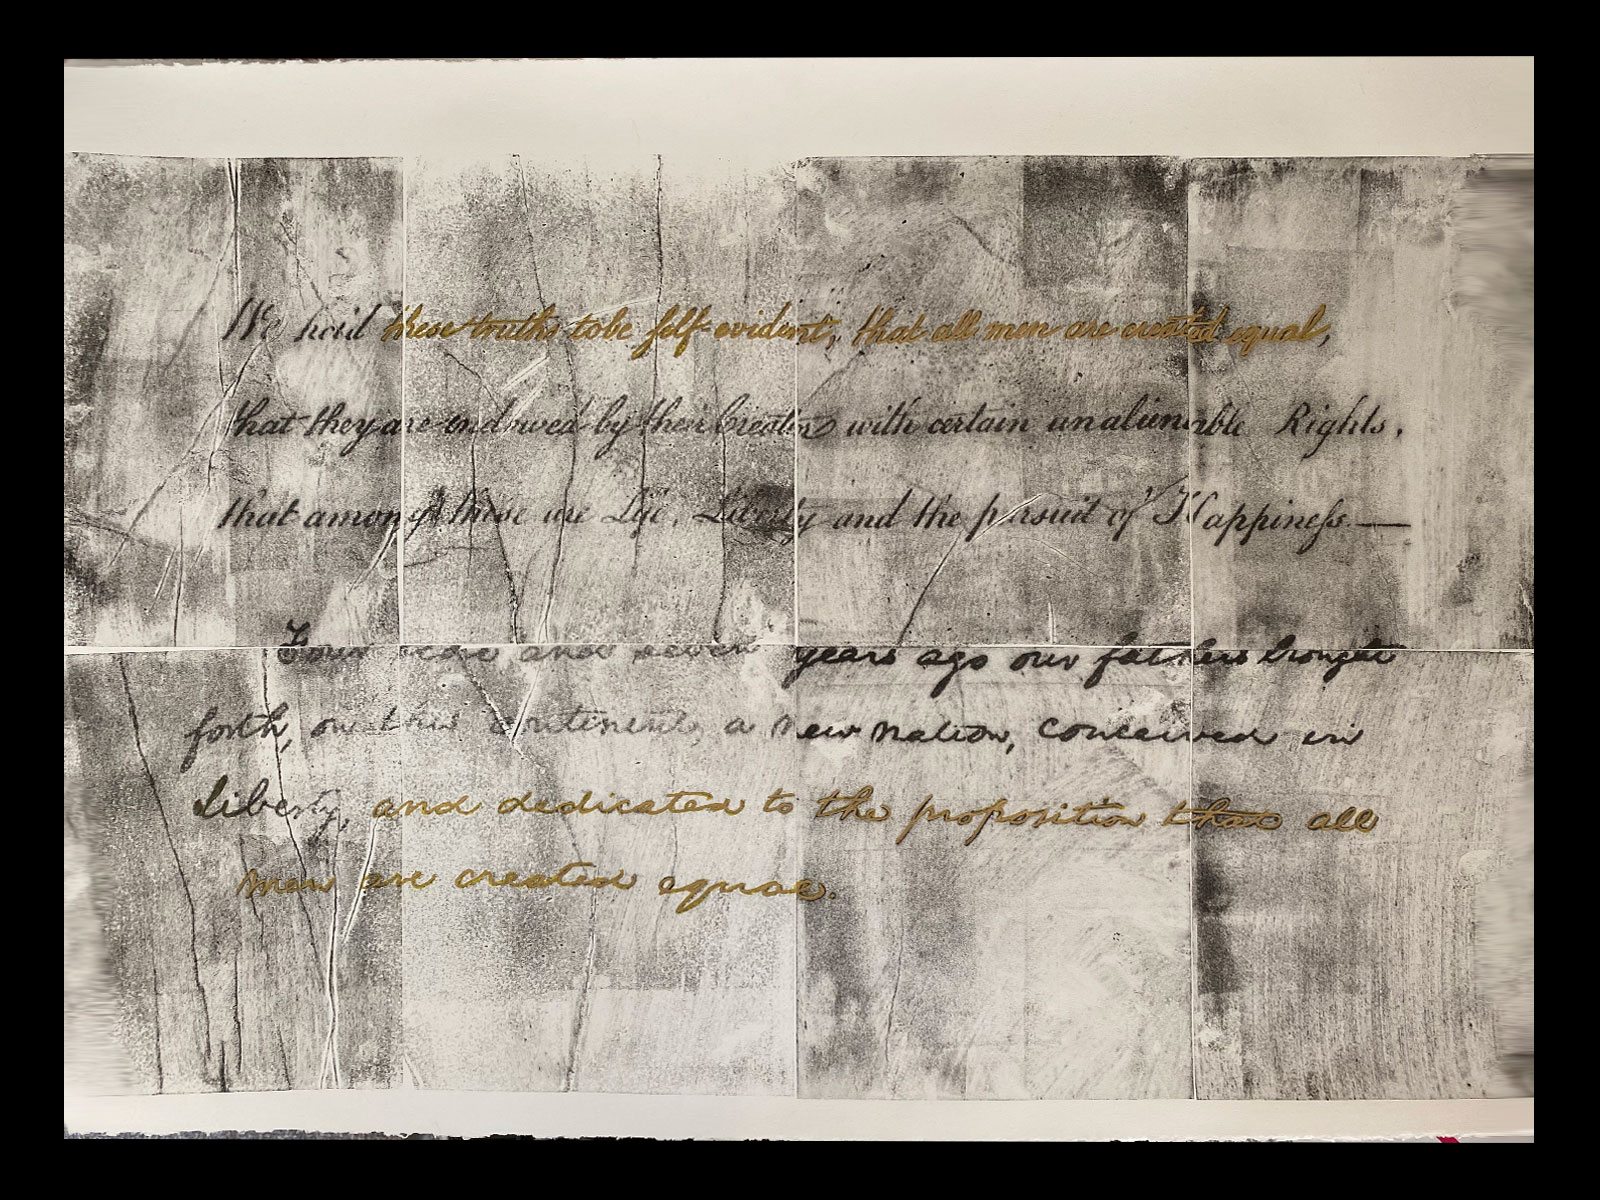 We hold these truths to be self-evident, that all men are created equal,
that they are endowed by their Creator with certain unalienable Rights,
that among these are Life, Liberty and the pursuit of Happiness.—
Four score and seven years ago our fathers brought
forth, on this continent, a new nation, conceived in
liberty, and dedicated to the proposition that all
men are created equal.